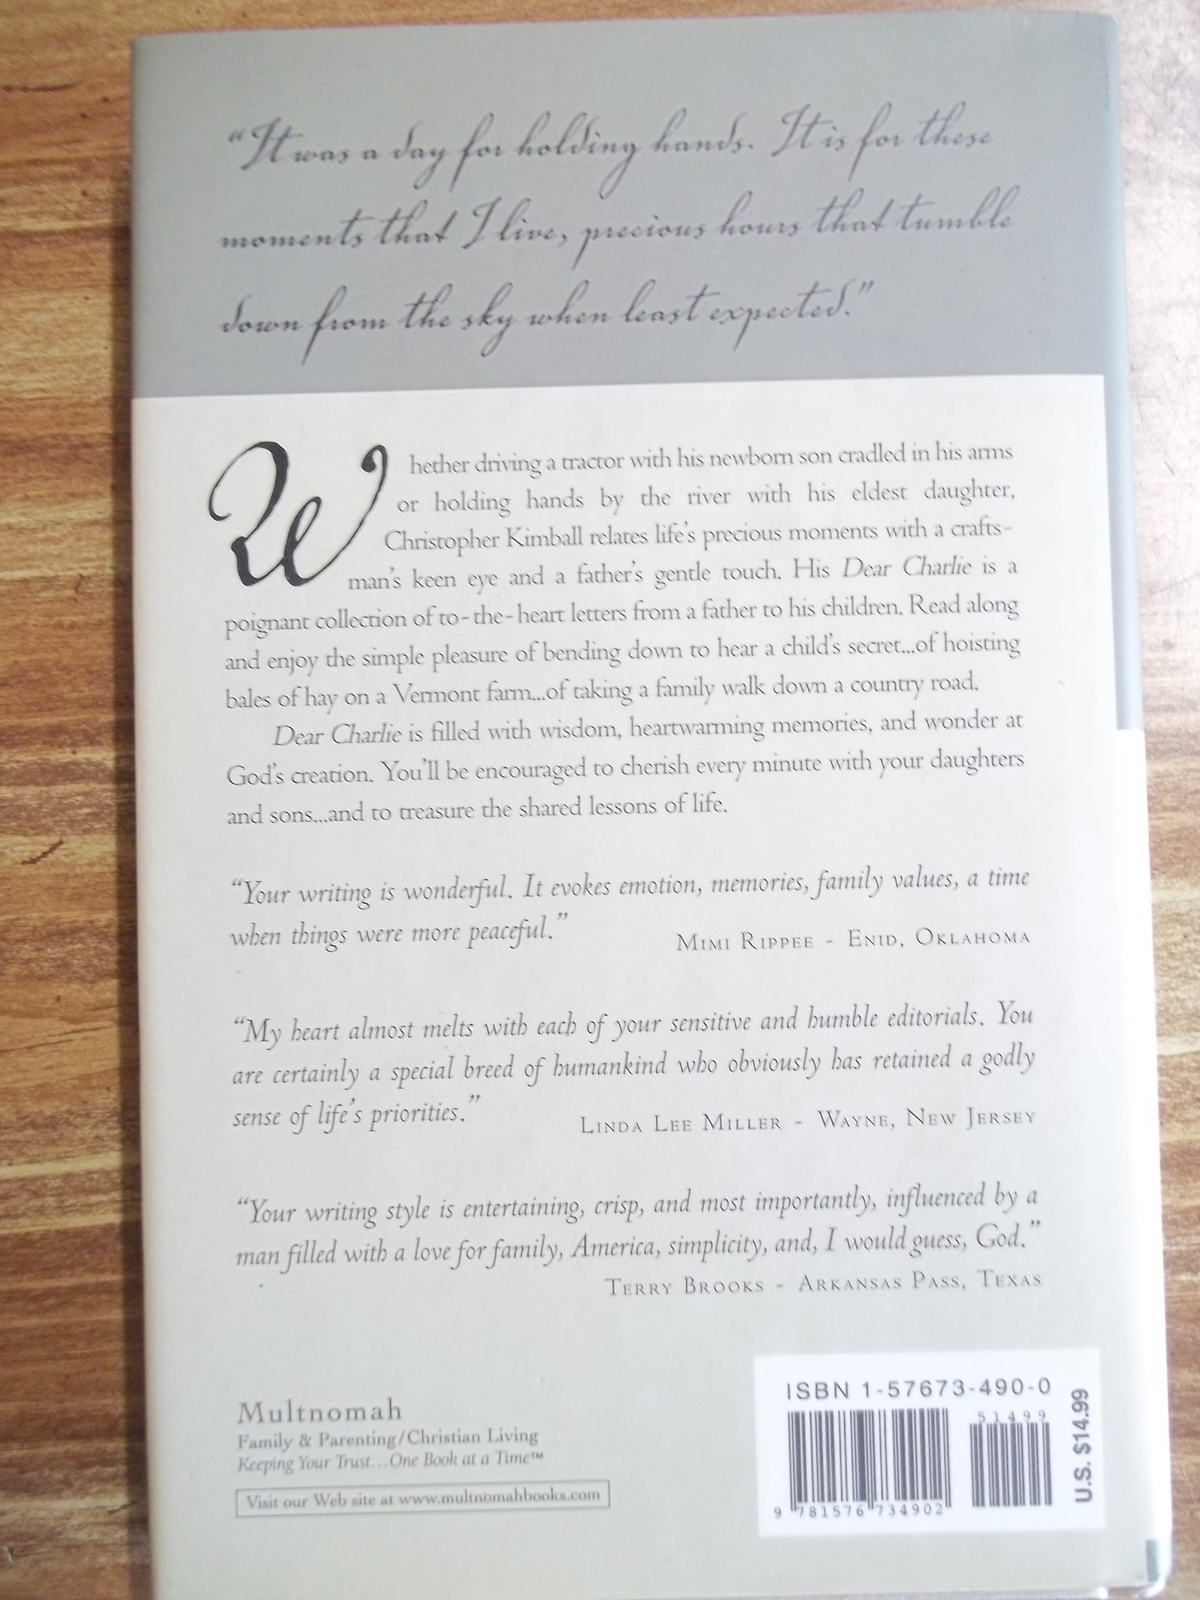 “It was a day for holding hands. It is for these
moments that I live, precious hours that tumble
down from the sky when least expected.”
Whether driving a tractor with his newborn son cradled in his arms
or holding hands by the river with his eldest daughter,
Christopher Kimball relates life's precious moments with a crafts-
man's keen eye and a father's gentle touch. His Dear Charlie is a
poignant collection of to-the-heart letters from a father to his children. Read along
and enjoy the simple pleasure of bending down to hear a child's secret...of hoisting
bales of hay on a Vermont farm...of taking a family walk down a country road.
Dear Charlie is filled with wisdom, heartwarming memories, and wonder at
God's creation. You'll be encouraged to cherish every minute with your daughters
and sons...and to treasure the shared lessons of life.
“Your writing is wonderful. It evokes emotion, memories, family values, a time
when things were more peaceful.”
Mimi Rippee - Enid, Oklahoma
“My heart almost melts with each of your sensitive and humble editorials. You
are certainly a special breed of humankind who obviously has retained a godly
sense of life's priorities.”
Linda Lee Miller - Wayne, New Jersey
“Your writing style is entertaining, crisp, and most importantly, influenced by a
man filled with a love for family, America, simplicity, and, I would guess, God.”
Terry Brooks - Arkansas Pass, Texas
Multnomah
Family & Parenting/Christian Living
Keeping Your Trust...One Book at a Time™
Visit our Web site at www.multnomahbooks.com
ISBN 1-57673-490-0
51499
9 781576 734902
U.S. $14.99